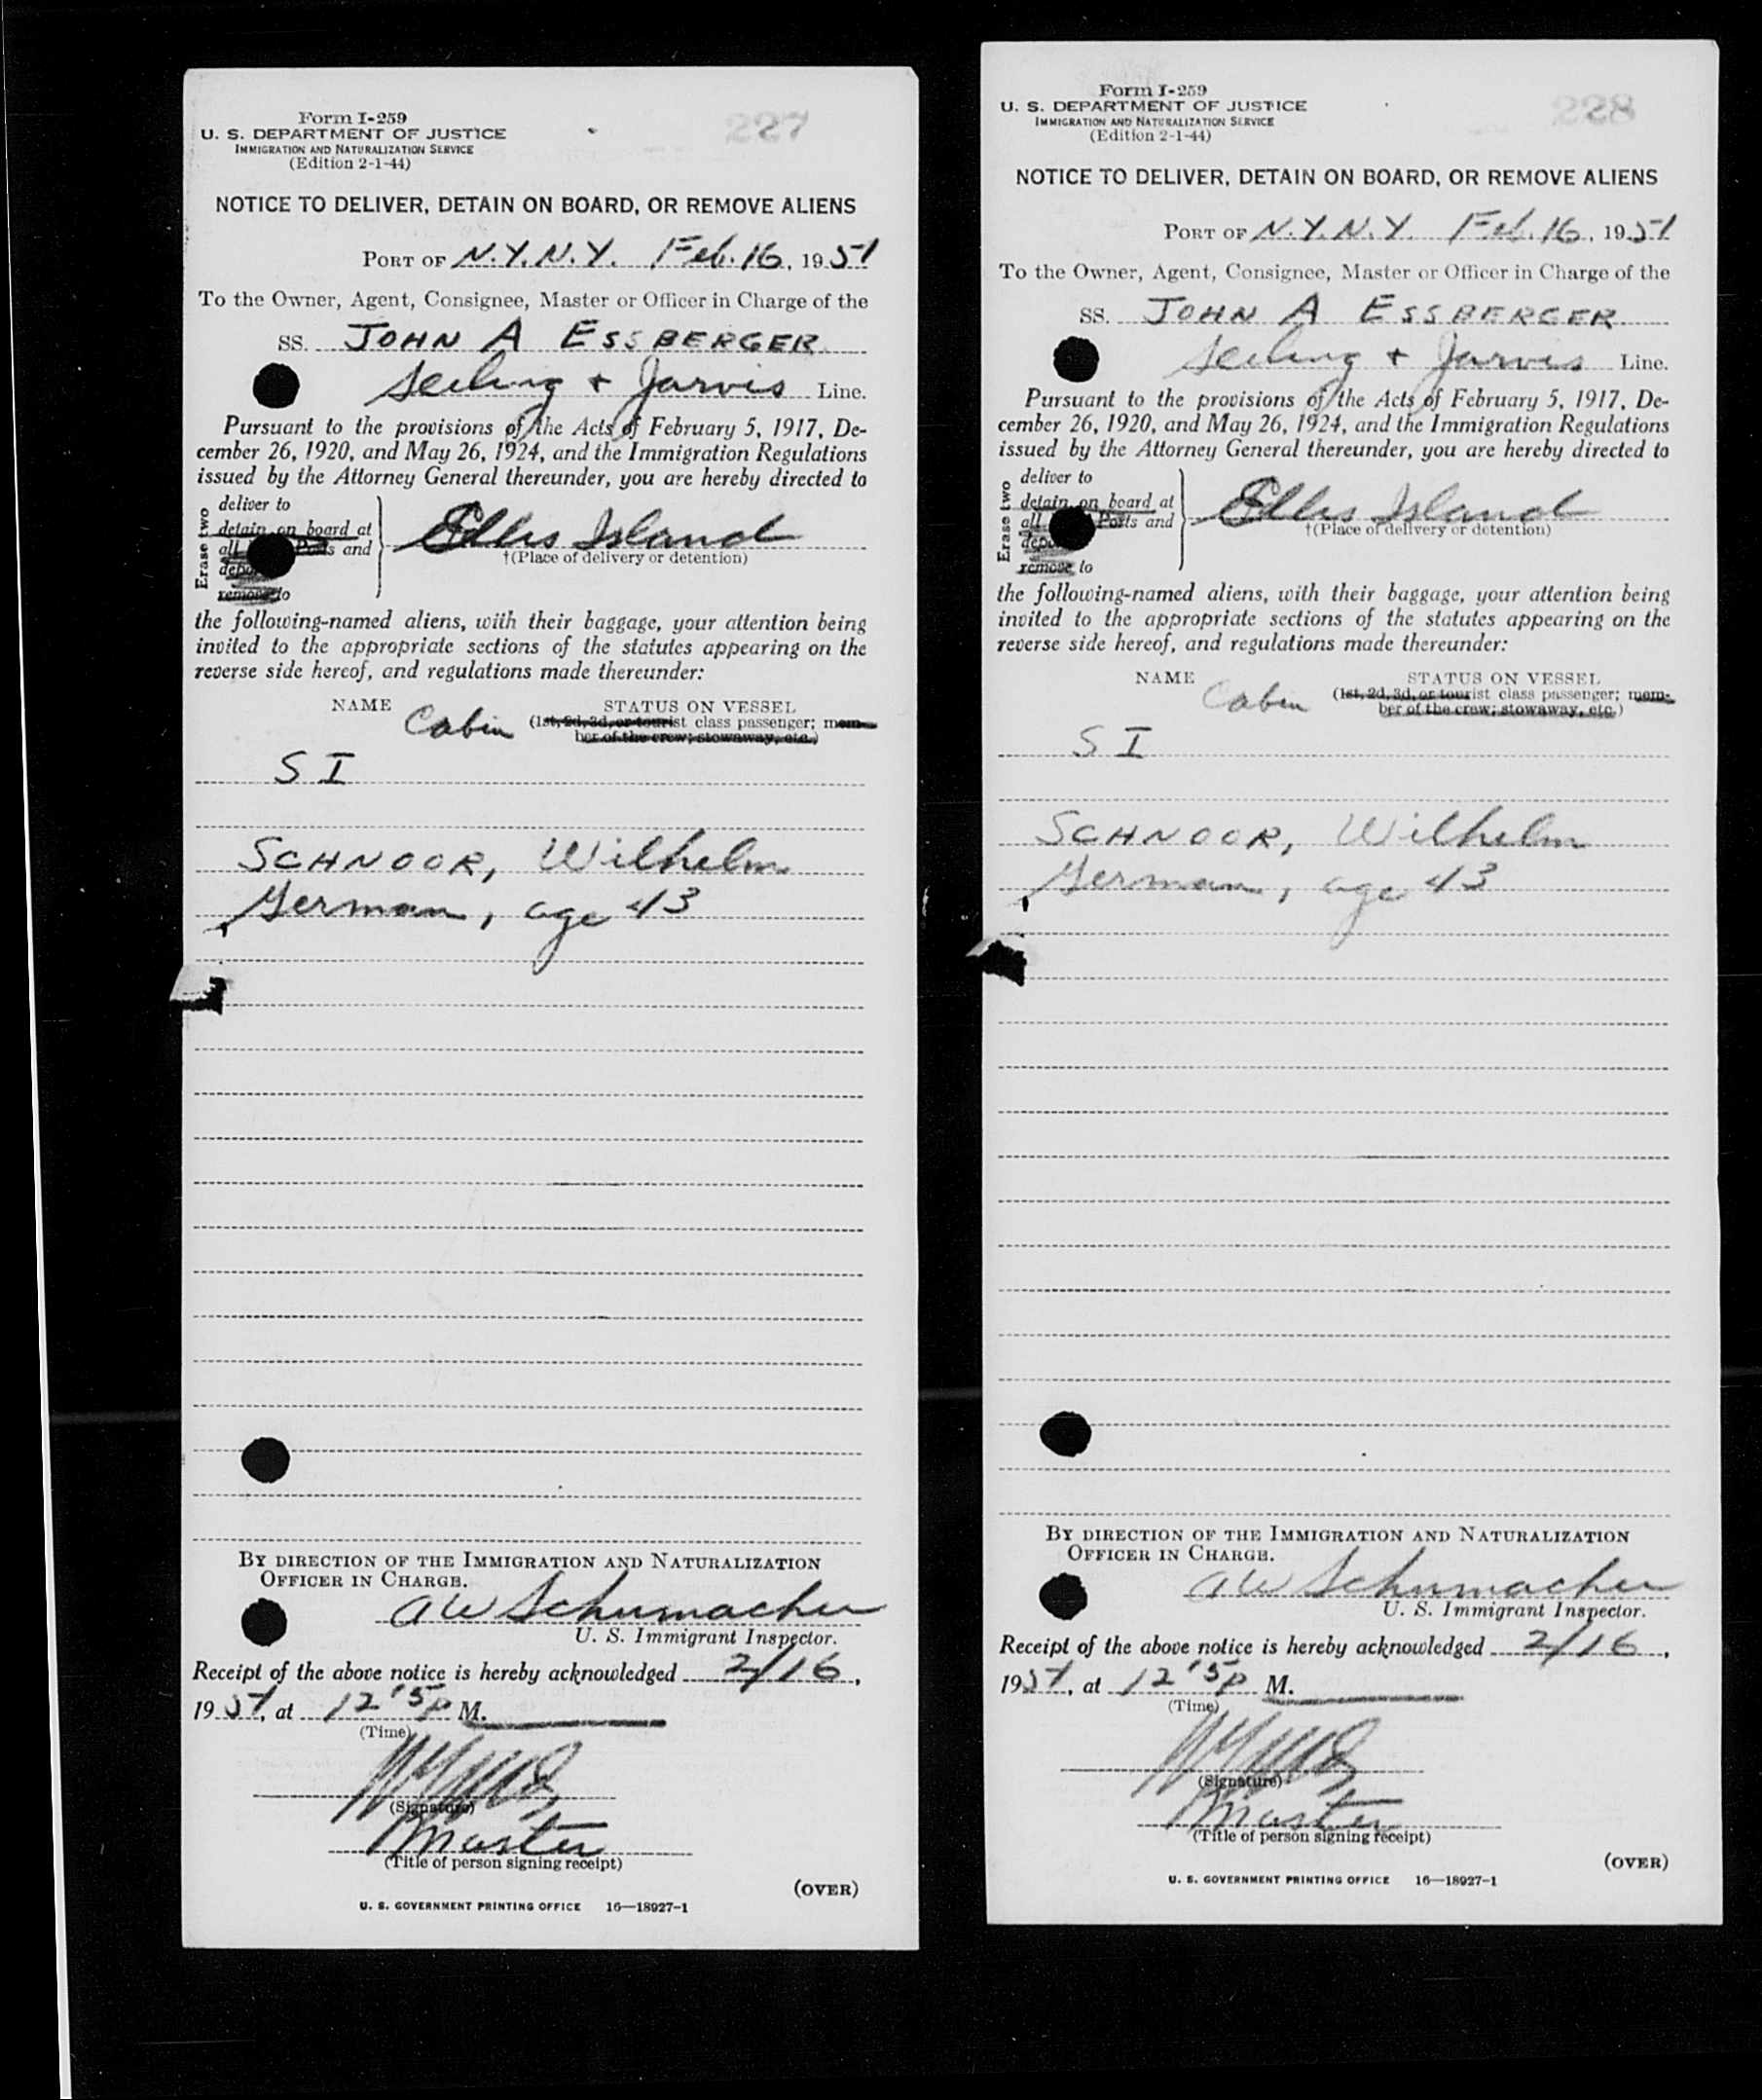 Form I-259
U. S. DEPARTMENT OF JUSTICE
IMMIGRATION AND NATURALIZATION SERVICE
(Edition 2-1-44)
227
NOTICE TO DELIVER, DETAIN ON BOARD, OR REMOVE ALIENS
PORT OF N.Y.N.Y. Feb. 16, 1951
To the Owner, Agent, Consignee, Master or Officer in Charge of the
SS. JOHN A ESSBERGER
& Jarvis Line.
Pursuant to the provisions of the Acts of February 5, 1917, De-
cember 26, 1920, and May 26, 1924, and the Immigration Regulations
issued by the Attorney General thereunder, you are hereby directed to
Erase two
deliver to
detain on board at
all Ports and
remove to
Ellis Island
†(Place of delivery or detention)
the following-named aliens, with their baggage, your attention being
invited to the appropriate sections of the statutes appearing on the
reverse side hereof, and regulations made thereunder:
NAME STATUS ON VESSEL
Cabin (1st, 2d, 3d, or tourist class passenger; mem-
ber of the crew; stowaway, etc.)
S I
SCHNOOR, Wilhelm
German, age 43
BY DIRECTION OF THE IMMIGRATION AND NATURALIZATION
OFFICER IN CHARGE.
AW Schumacher
U. S. Immigrant Inspector.
Receipt of the above notice is hereby acknowledged 2/16,
1951, at 12 15 P M.
(Time)
(Signature)
Master
(Title of person signing receipt)
(OVER)
U. S. GOVERNMENT PRINTING OFFICE 16—18927-1
Form I-259
U. S. DEPARTMENT OF JUSTICE
IMMIGRATION AND NATURALIZATION SERVICE
(Edition 2-1-44)
228
NOTICE TO DELIVER, DETAIN ON BOARD, OR REMOVE ALIENS
PORT OF N.Y.N.Y. Feb. 16, 1951
To the Owner, Agent, Consignee, Master or Officer in Charge of the
SS. JOHN A ESSBERGER
& Jarvis Line.
Pursuant to the provisions of the Acts of February 5, 1917, De-
cember 26, 1920, and May 26, 1924, and the Immigration Regulations
issued by the Attorney General thereunder, you are hereby directed to
Erase two
deliver to
detain on board at
all Ports and
remove to
Ellis Island
†(Place of delivery or detention)
the following-named aliens, with their baggage, your attention being
invited to the appropriate sections of the statutes appearing on the
reverse side hereof, and regulations made thereunder:
NAME STATUS ON VESSEL
Cabin (1st, 2d, 3d, or tourist class passenger; mem-
ber of the crew; stowaway, etc.)
S I
SCHNOOR, Wilhelm
German, age 43
BY DIRECTION OF THE IMMIGRATION AND NATURALIZATION
OFFICER IN CHARGE.
AW Schumacher
U. S. Immigrant Inspector.
Receipt of the above notice is hereby acknowledged 2/16,
1951, at 12 15 P M.
(Time)
(Signature)
Master
(Title of person signing receipt)
(OVER)
U. S. GOVERNMENT PRINTING OFFICE 16—18927-1